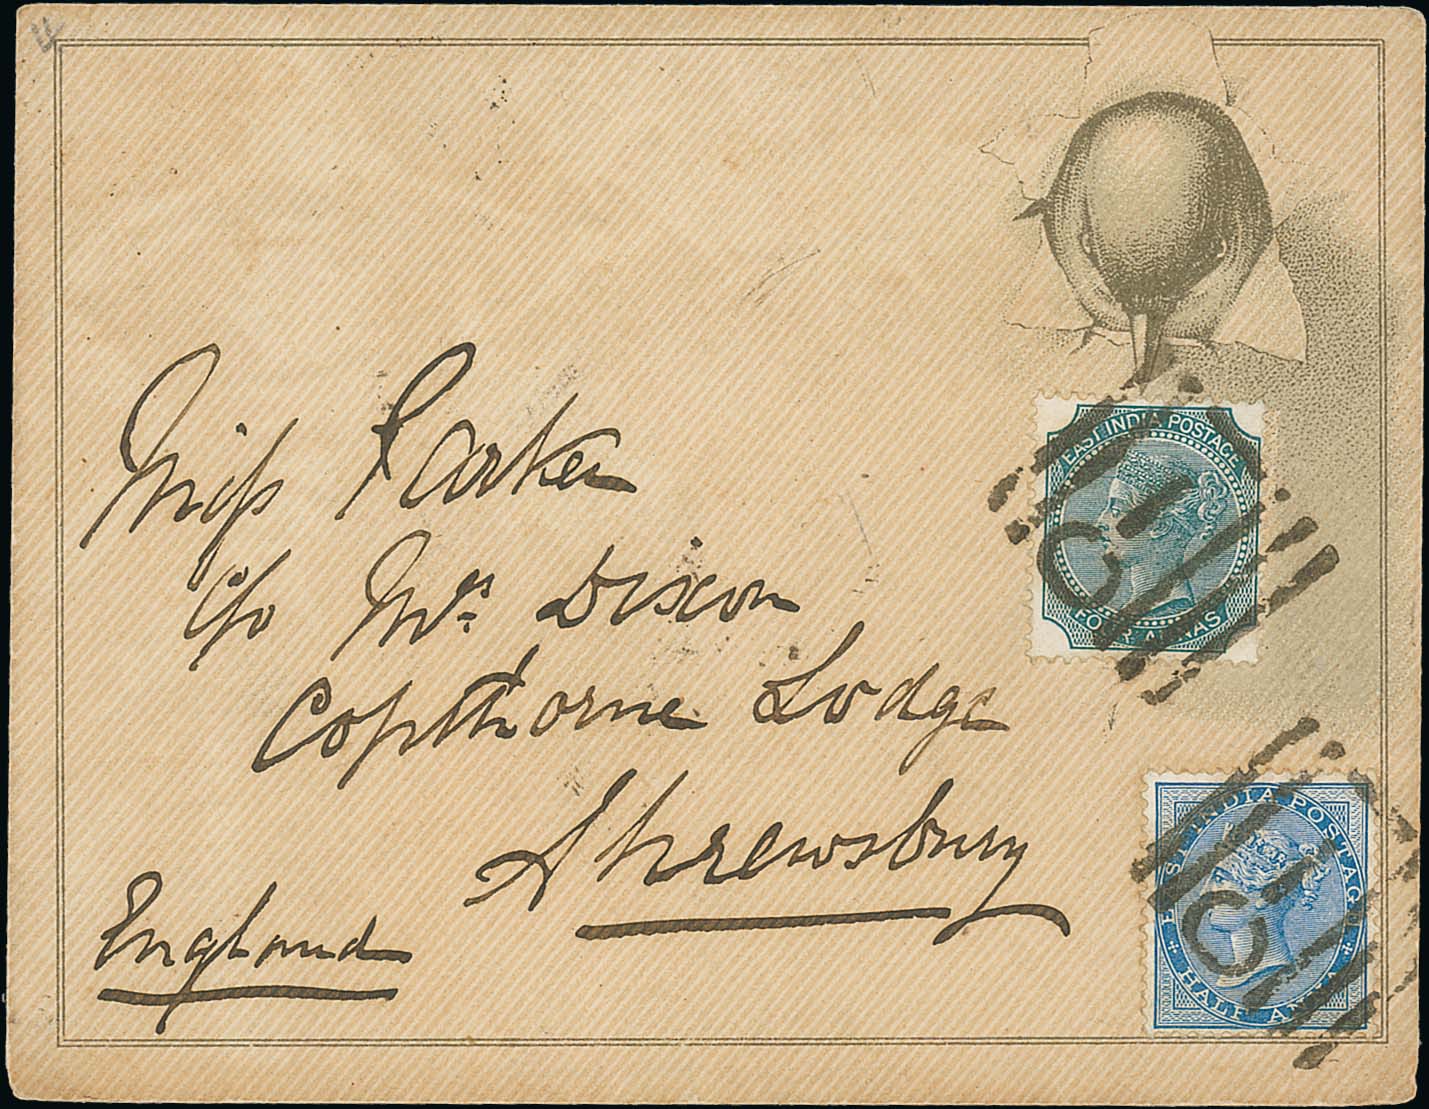 Miss Parker
c/o Mrs Dixon
Copthorne Lodge
Shrewsbury
England
EAST INDIA POSTAGE
FOUR ANNAS
C
1
EAST INDIA POSTAGE
HALF ANNA
C
1